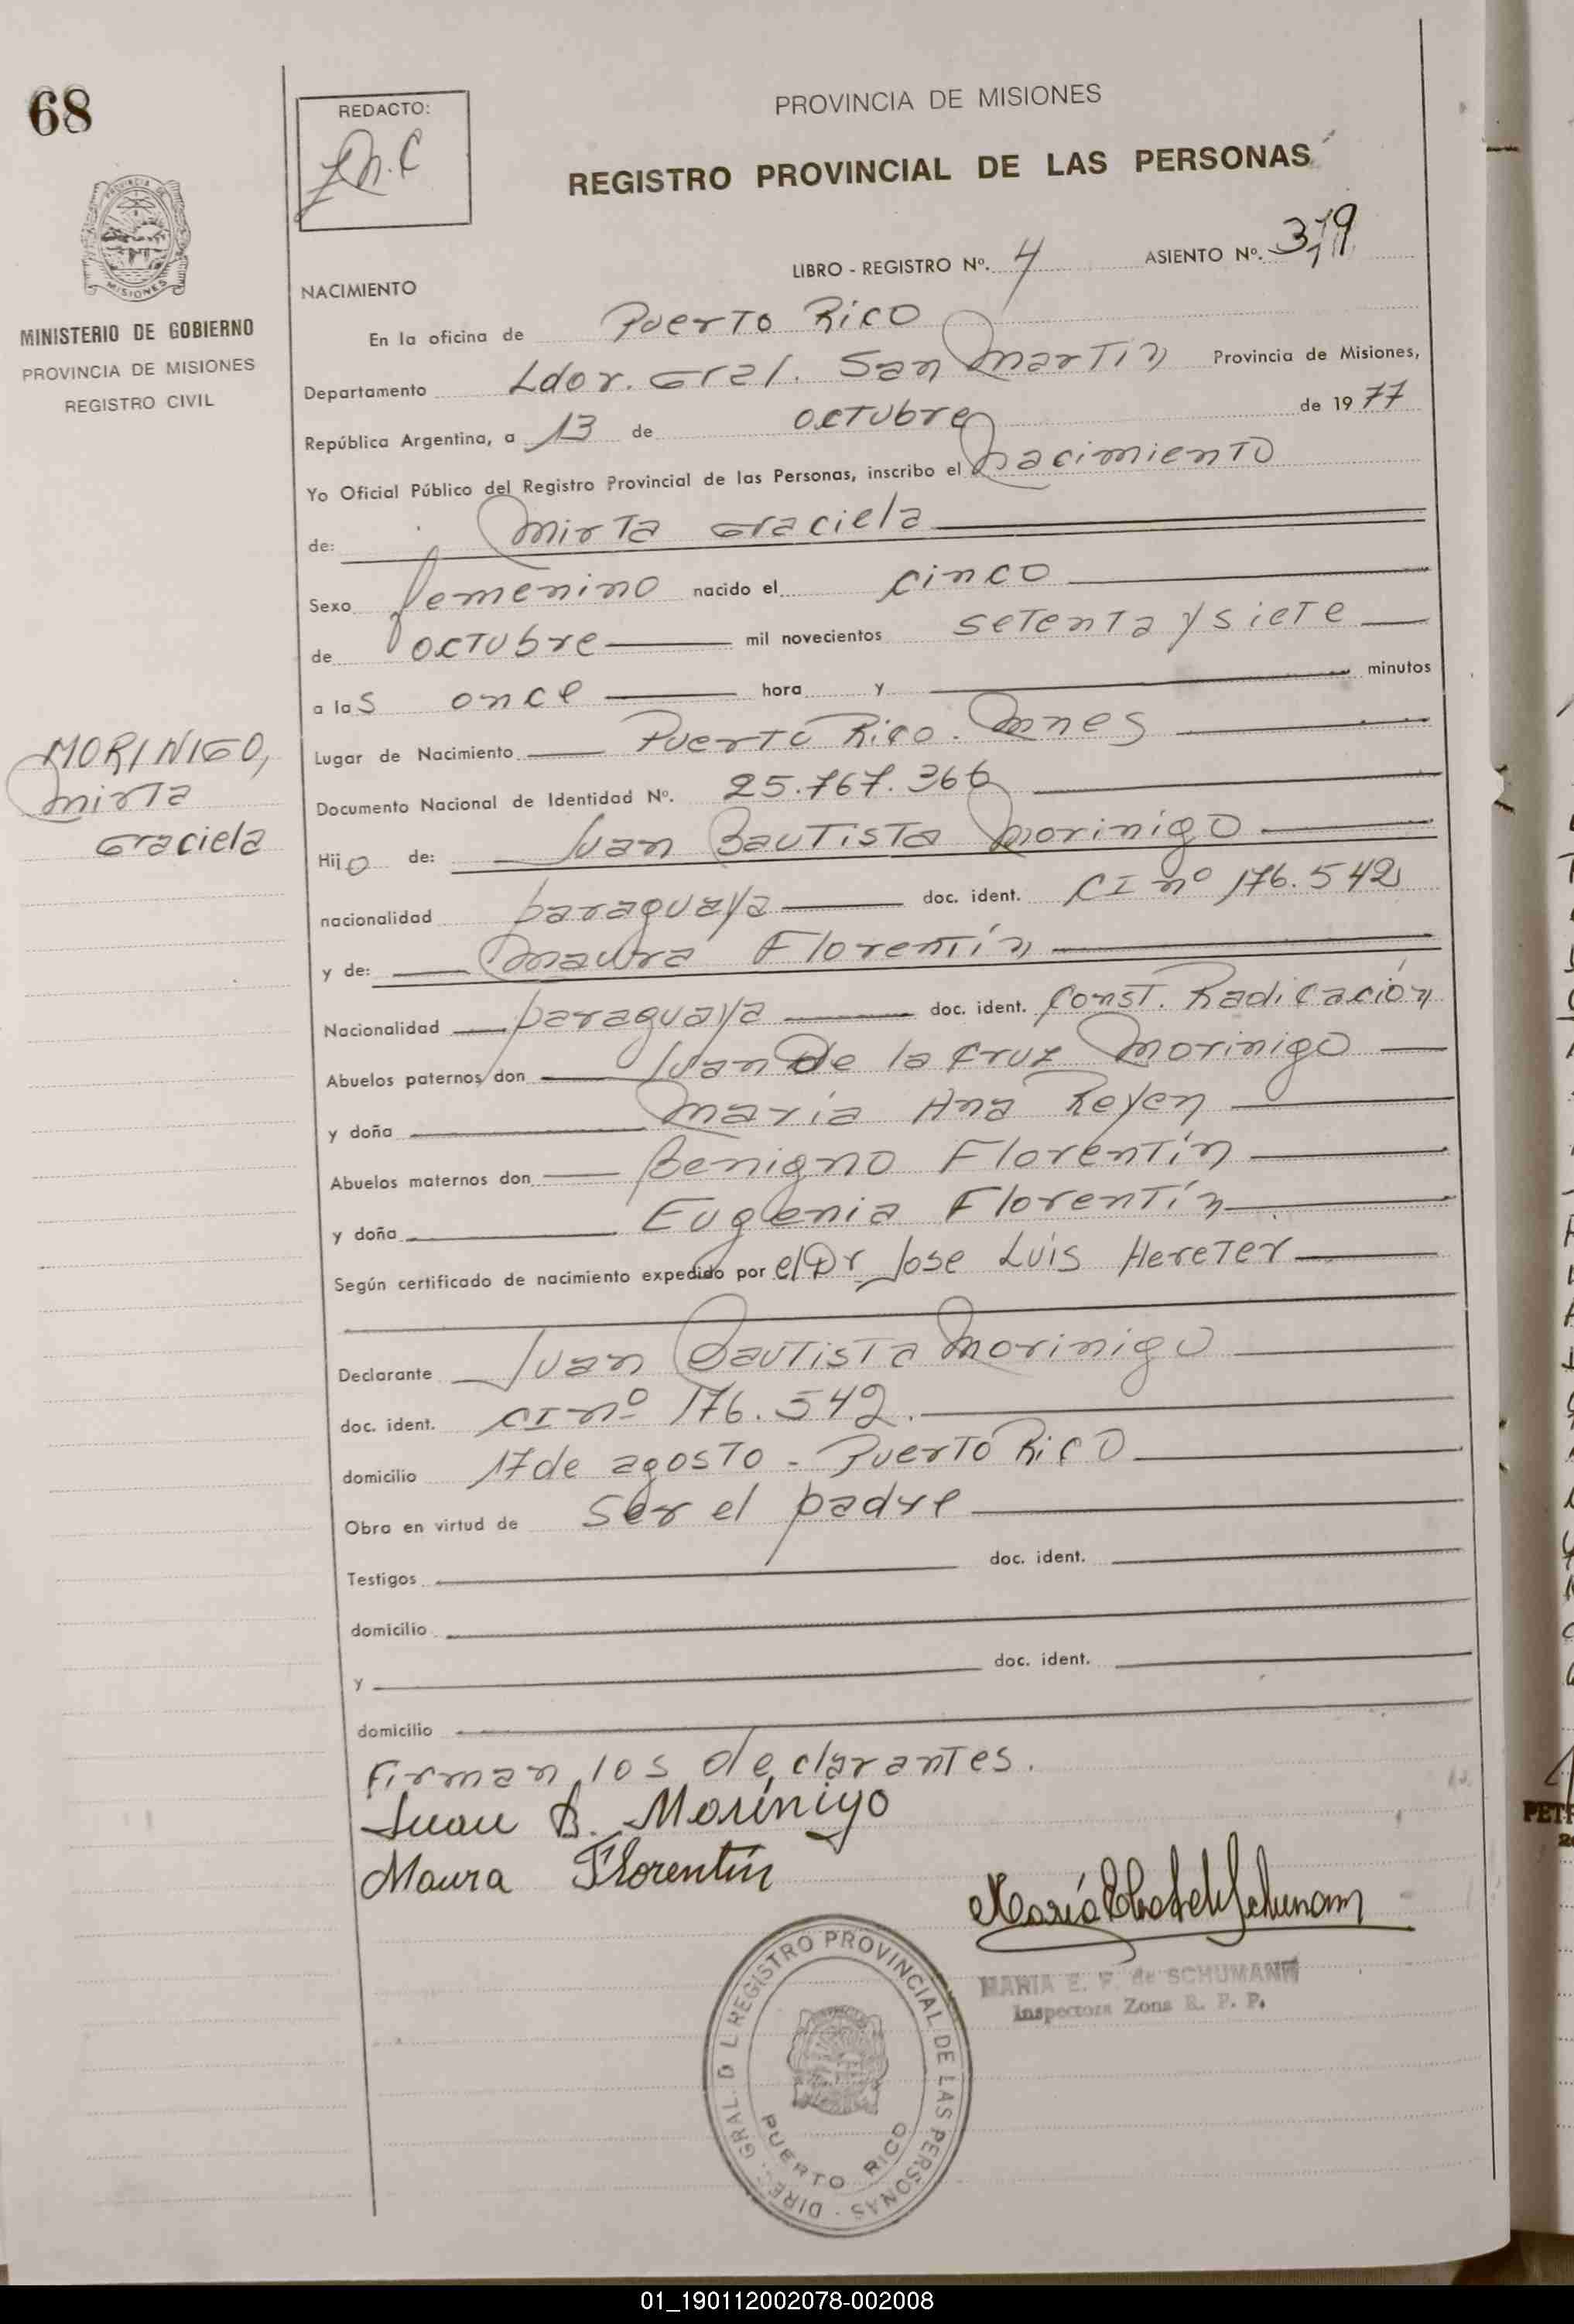 68
REDACTO:
PROVINCIA DE MISIONES
REGISTRO PROVINCIAL DE LAS PERSONAS
LIBRO - REGISTRO Nº. 4 ASIENTO Nº. 379
MISIONES
MINISTERIO DE GOBIERNO
PROVINCIA DE MISIONES
REGISTRO CIVIL
NACIMIENTO
En la oficina de Puerto Rico
Departamento Ldor. Gral. San Martín Provincia de Misiones,
República Argentina, a 13 de octubre de 1977
Yo Oficial Público del Registro Provincial de las Personas, inscribo el nacimiento
de: Mirta Graciela
Sexo femenino nacido el cinco
de octubre mil novecientos setenta y siete
a las once hora y minutos
Lugar de Nacimiento Puerto Rico. Mnes
MORINIGO,
Mirta
Graciela
Documento Nacional de Identidad Nº. 25.767.366
Hijo de: Juan Bautista Morinigo
nacionalidad paraguaya doc. ident. CI nº 176.542
y de: Maura Florentín
Nacionalidad paraguaya doc. ident. Const. Radicación
Abuelos paternos don Juan De la Cruz Morinigo
y doña María Ana Reyen
Abuelos maternos don Benigno Florentín
y doña Eugenia Florentín
Según certificado de nacimiento expedido por el Dr Jose Luis Hereter
Declarante Juan Bautista Morinigo
doc. ident. CI nº 176.542.
domicilio 17 de agosto - Puerto Rico
Obra en virtud de ser el padre
Testigos doc. ident.
domicilio
y doc. ident.
domicilio
Firman los declarantes.
Juan B. Morínigo
Maura Florentín
MARIA E. F. de SCHUMANN
Inspectora Zona R. P. P.
DIREC. GRAL. D L REGISTRO PROVINCIAL DE LAS PERSONAS -
PUERTO RICO
01_190112002078-002008